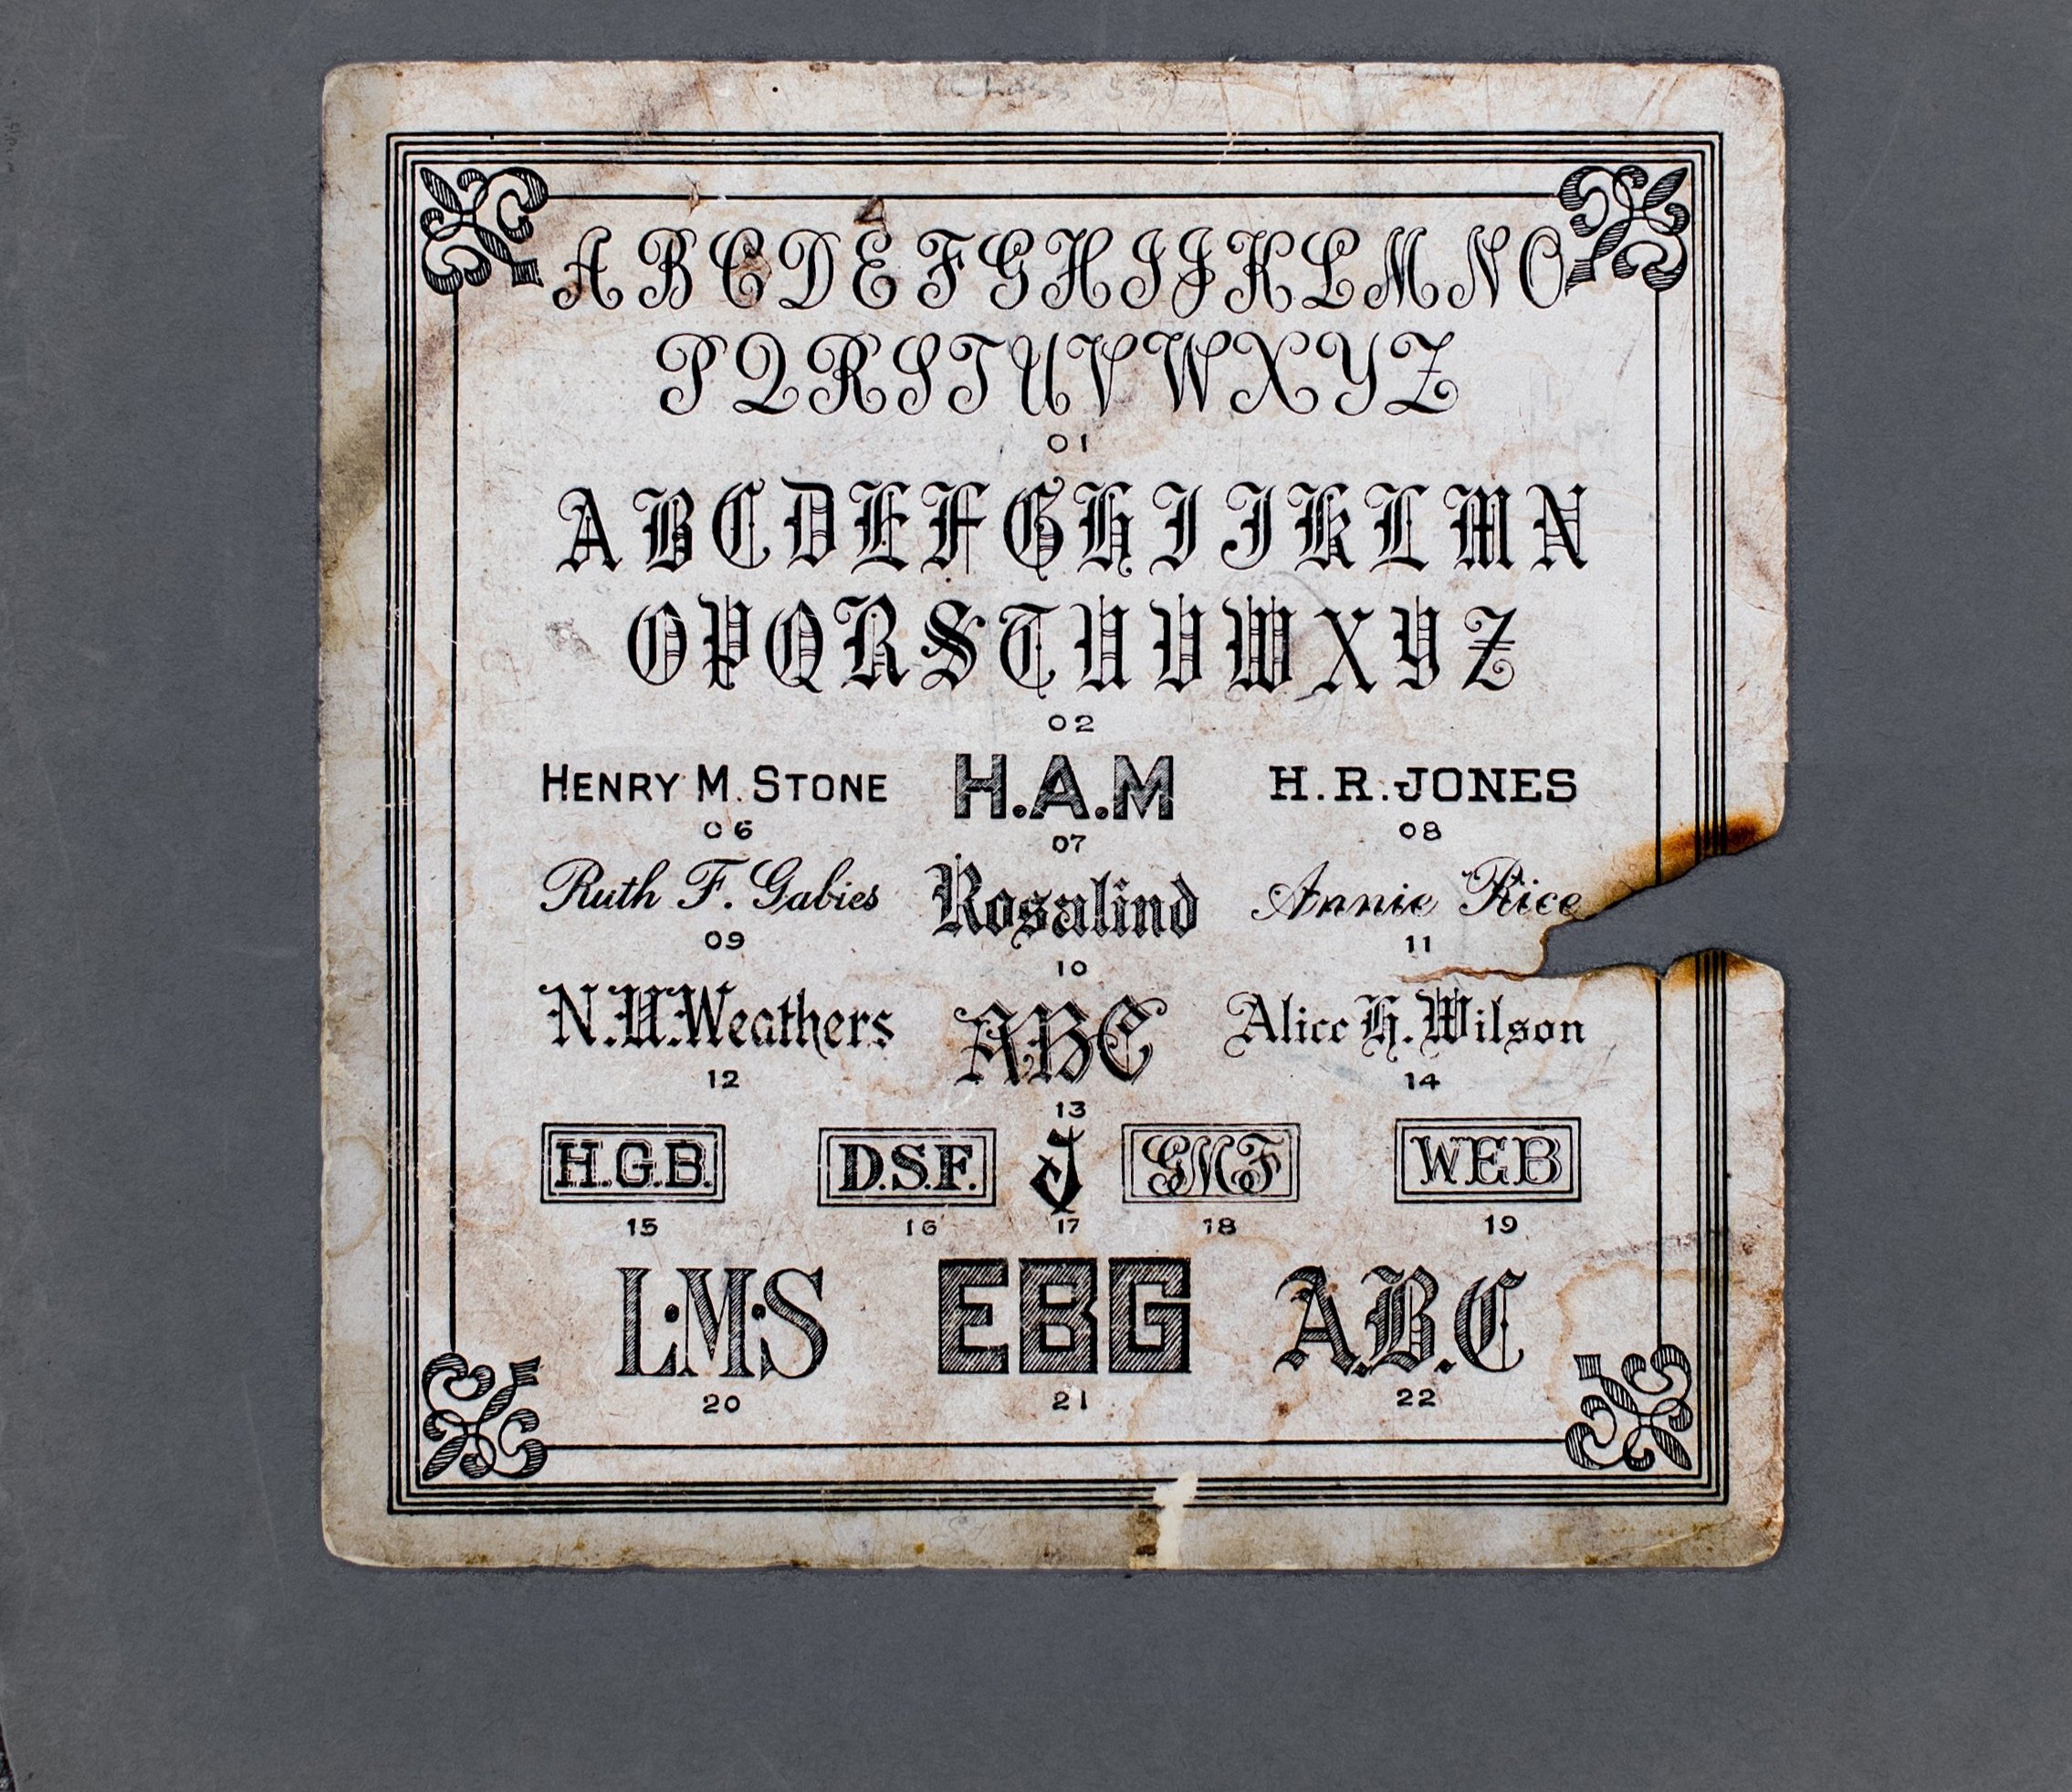 A B C D E F G H I J K L M N O
P Q R S T U V W X Y Z
01
A B C D E F G H I J K L M N
O P Q R S T U V W X Y Z
02
HENRY M. STONE H.A.M H.R.JONES
06 07 08
Ruth F. Gabies Rosalind Annie Rice
09 10 11
N.U.Weathers ABC Alice H. Wilson
12 13 14
H.G.B. D.S.F. J GMF WEB
15 16 17 18 19
L·M·S EBG A.B.C
20 21 22